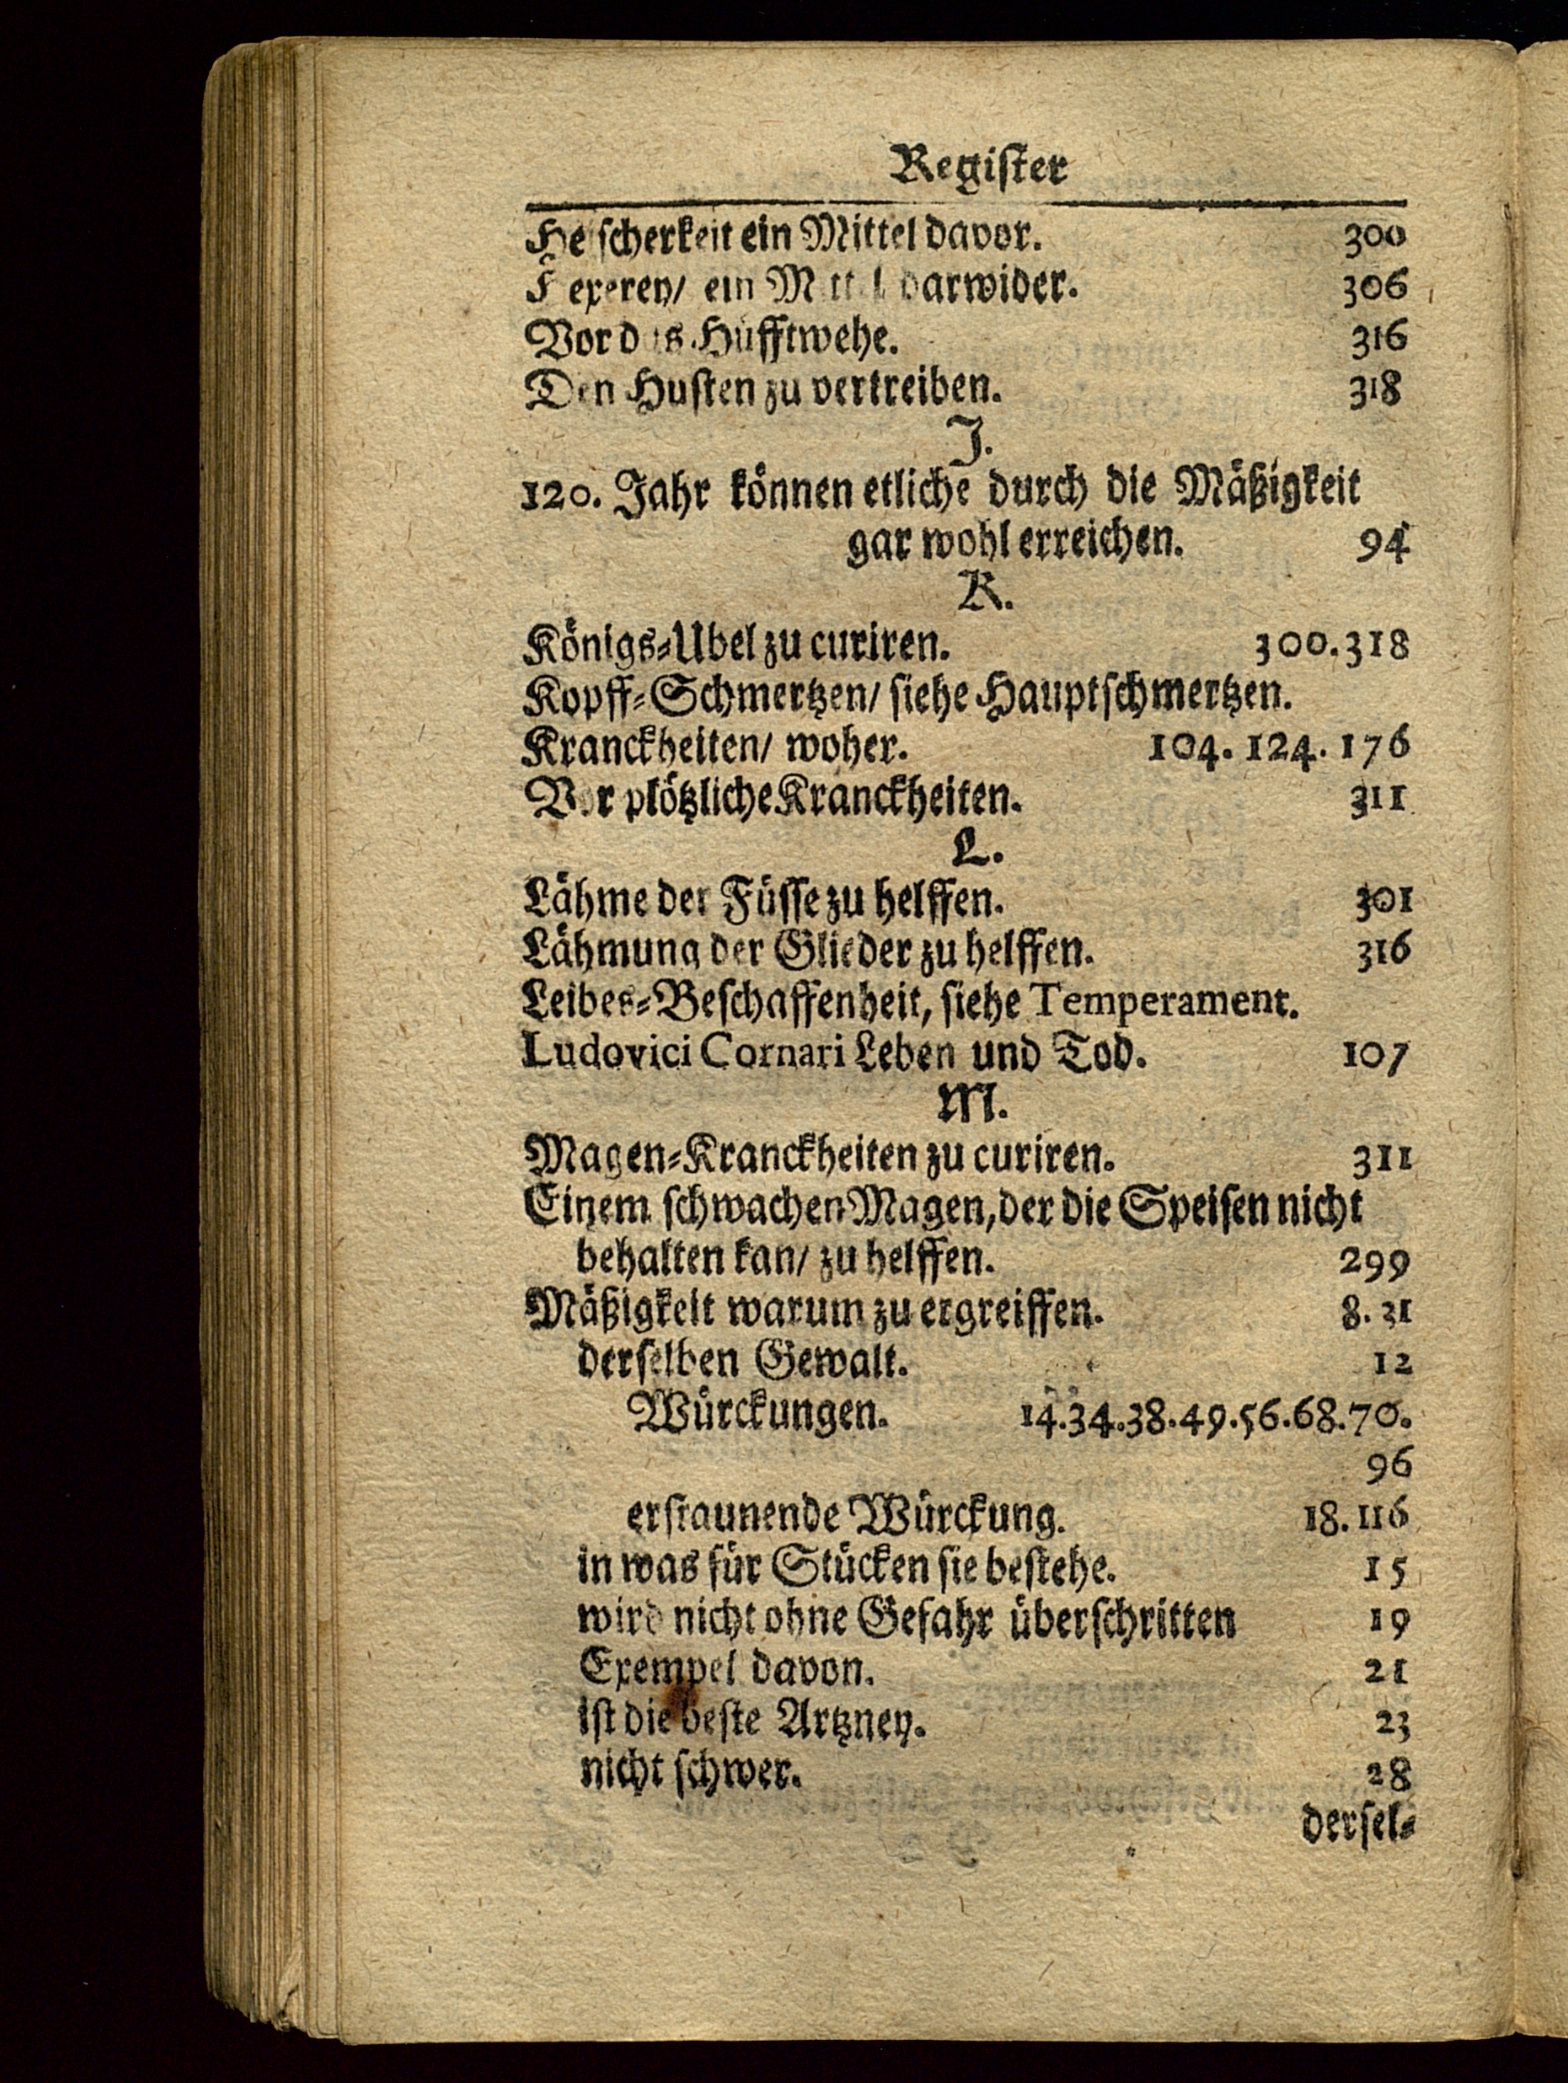 Register
Heischerkeit ein Mittel davor. 300
Hexerey/ ein Mittel darwider. 306
Vor das Hüfftwehe. 316
Den Husten zu vertreiben. 318
J.
120. Jahr können etliche durch die Mäßigkeit
gar wohl erreichen. 94
K.
Königs-Ubel zu curiren. 300.318
Kopff-Schmertzen/ siehe Hauptschmertzen.
Kranckheiten/ woher. 104. 124. 176
Vor plötzliche Kranckheiten. 311
L.
Lähme der Füsse zu helffen. 301
Lähmung der Glieder zu helffen. 316
Leibes-Beschaffenheit, siehe Temperament.
Ludovici Cornari Leben und Tod. 107
M.
Magen-Kranckheiten zu curiren. 311
Einem schwachen Magen, der die Speisen nicht
behalten kan/ zu helffen. 299
Mäßigkeit warum zu ergreiffen. 8. 31
derselben Gewalt. 12
Würckungen. 14.34.38.49.56.68.70.
96
erstaunende Würckung. 18.116
in was für Stücken sie bestehe. 15
wird nicht ohne Gefahr überschritten 19
Exempel davon. 21
ist die beste Artzney. 23
nicht schwer. 28
dersel-